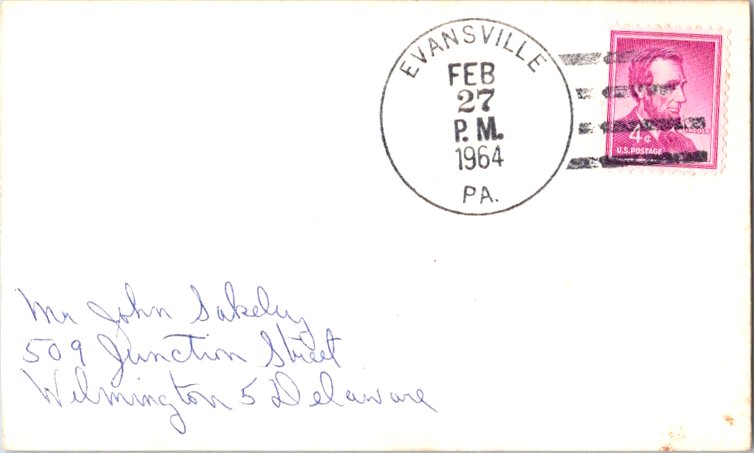 EVANSVILLE
FEB
27
P.M.
1964
PA.
LINCOLN
4¢
U.S. POSTAGE
Mr John Sakeley
509 Junction Street
Wilmington 5 Delaware